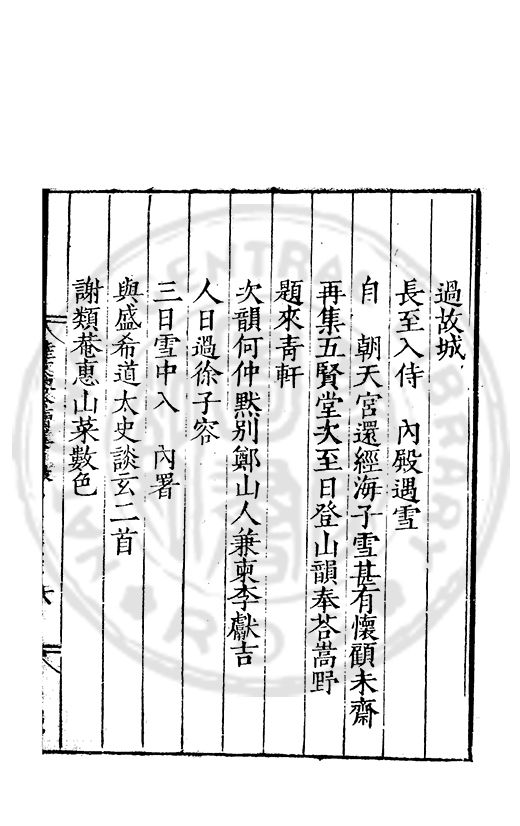 過故城
長至入侍　內殿遇雪
自　朝天宮還經海子雪甚有懷顧未齋
再集五賢堂次至日登山韻奉荅嵩野
題來青軒
次韻何仲默別鄭山人兼柬李獻吉
人日過徐子容
三日雪中入　內署
與盛希道太史談玄二首
謝類菴惠山菜數色